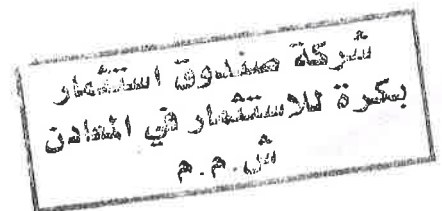 شركة صندوق استثمار
بكرة للاستثمار في المعادن
ش.م.م